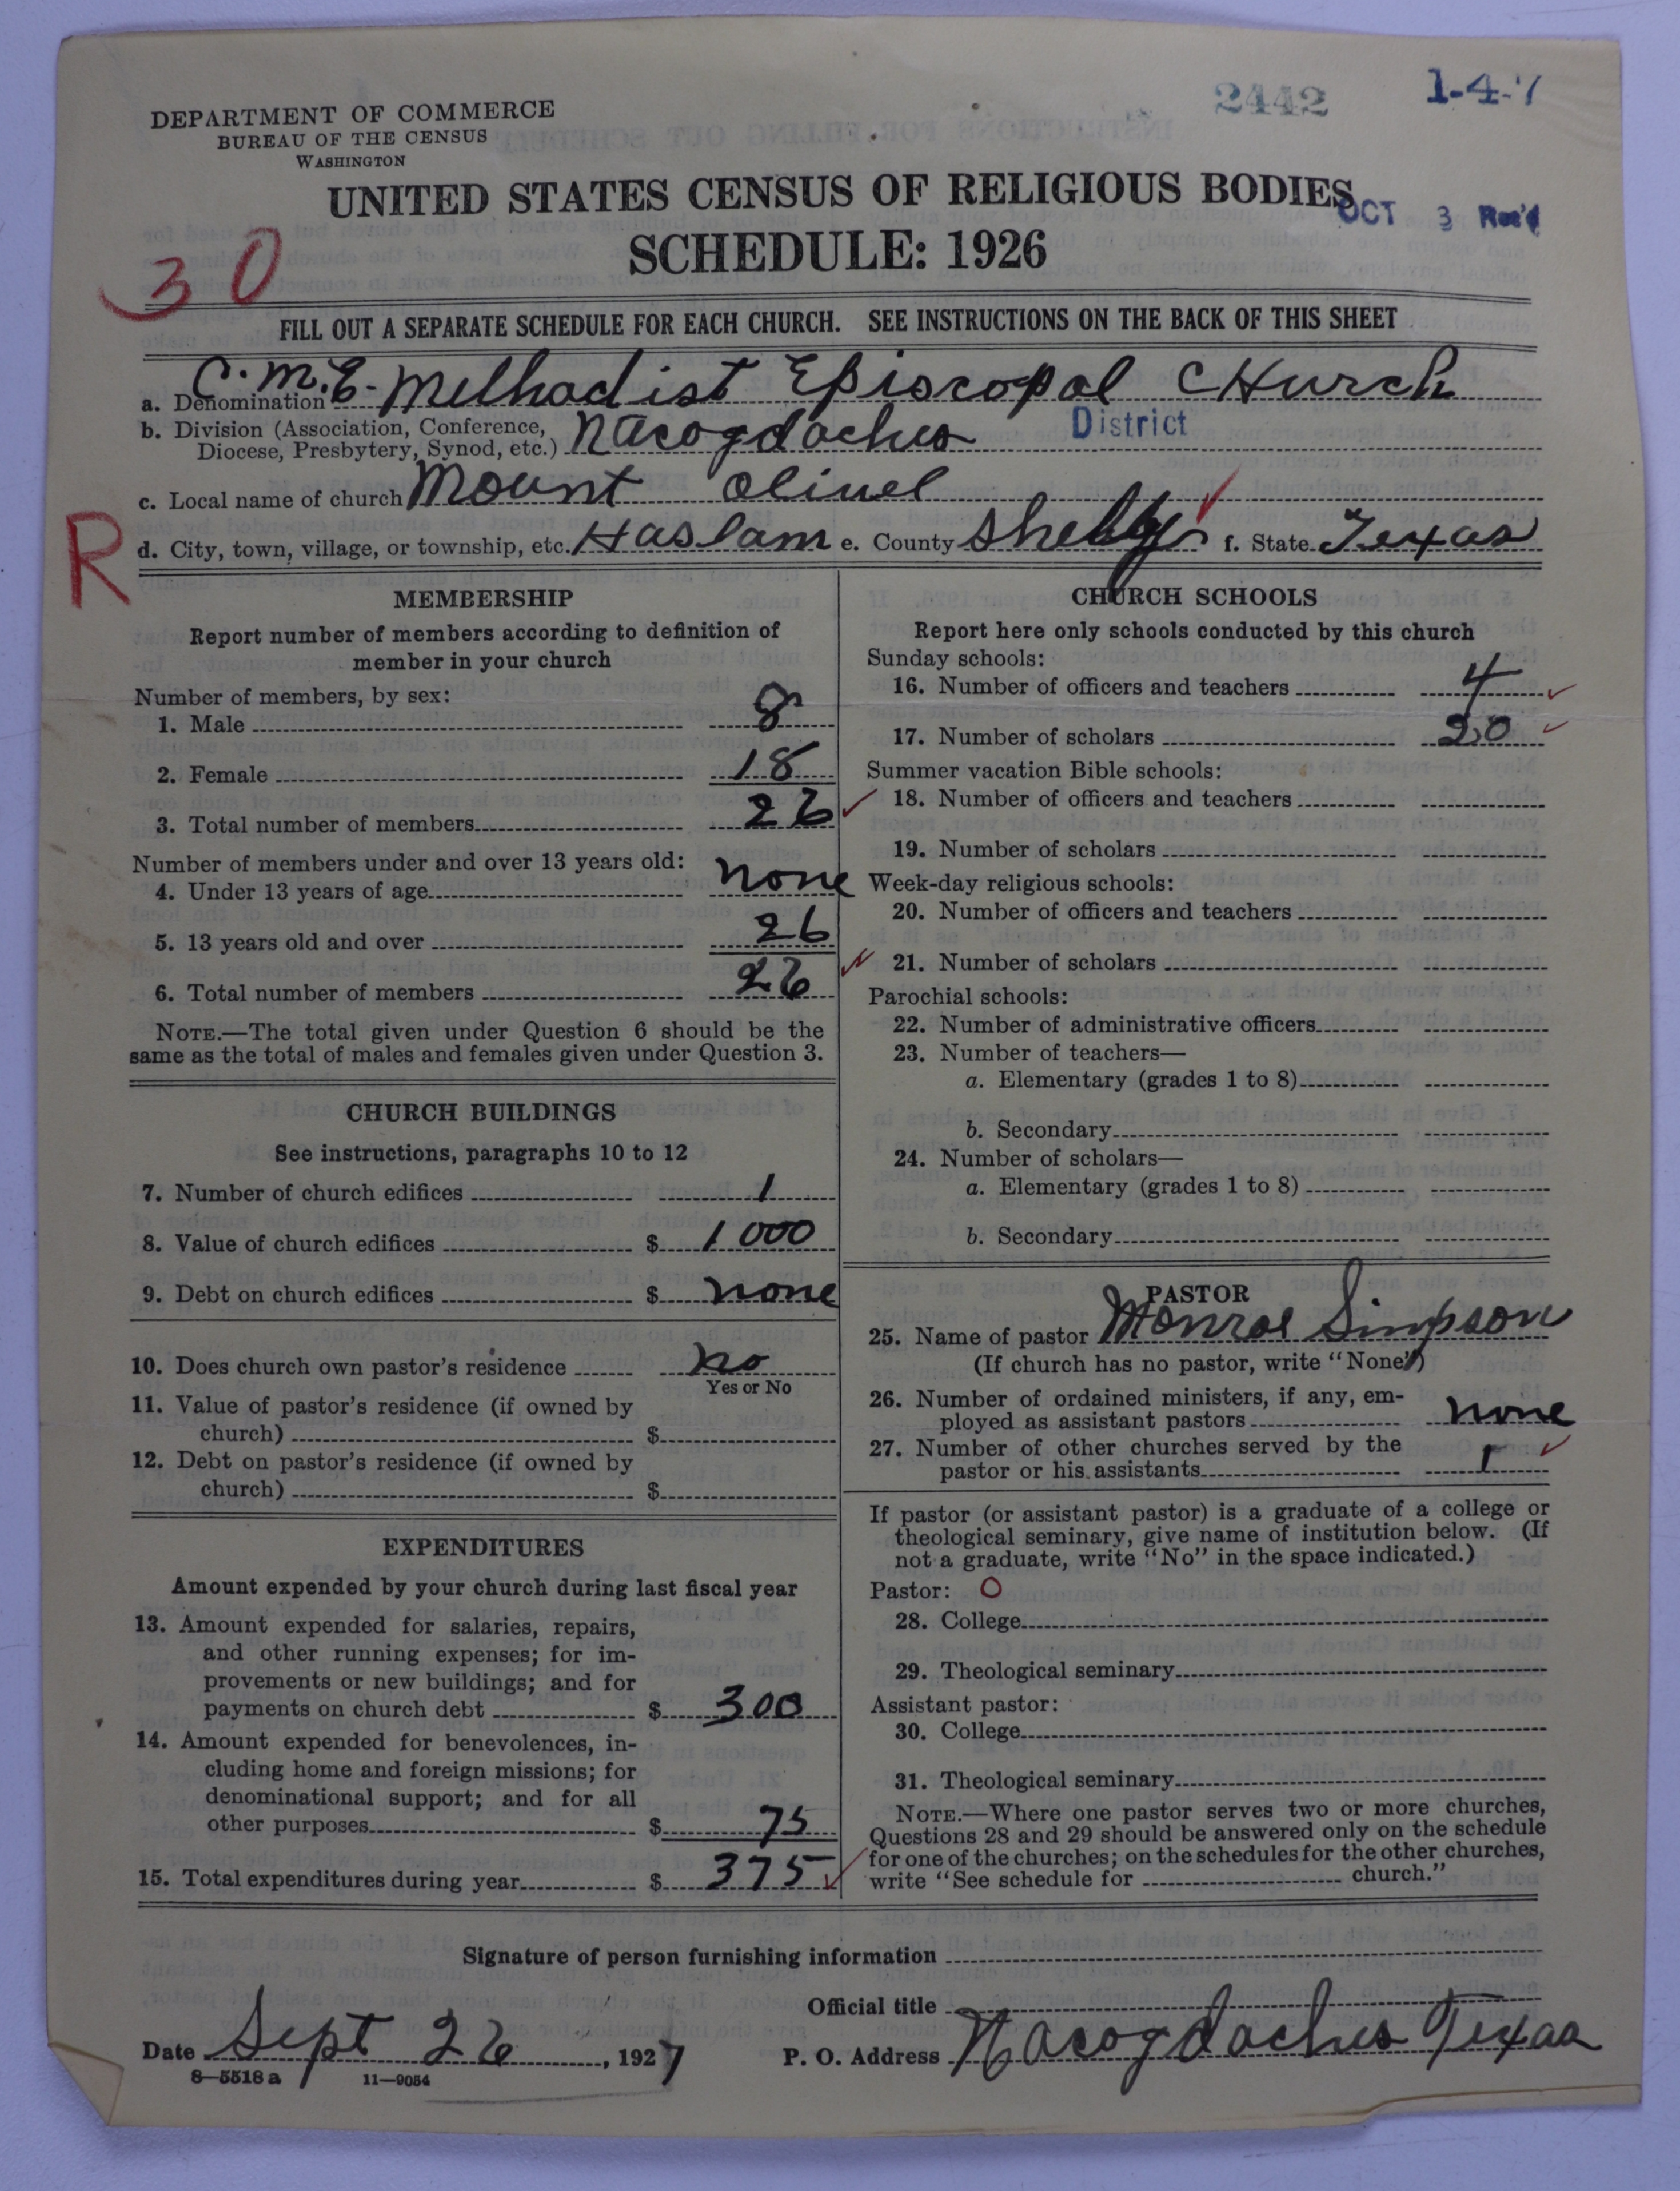 2442
1-4-7
DEPARTMENT OF COMMERCE
BUREAU OF THE CENSUS
WASHINGTON
UNITED STATES CENSUS OF RELIGIOUS BODIES
OCT 3 Rec'd
SCHEDULE: 1926
30
FILL OUT A SEPARATE SCHEDULE FOR EACH CHURCH. SEE INSTRUCTIONS ON THE BACK OF THIS SHEET
a. Denomination C.M.E. Methodist Episcopal CHurch
b. Division (Association, Conference, Diocese, Presbytery, Synod, etc.) Nacogdoches District
c. Local name of church Mount Olivel
R
d. City, town, village, or township, etc. Haslam e. County Shelby f. State Texas
MEMBERSHIP
Report number of members according to definition of
member in your church
Number of members, by sex:
1. Male 8
2. Female 18
3. Total number of members 26
Number of members under and over 13 years old:
4. Under 13 years of age none
5. 13 years old and over 26
6. Total number of members 26
NOTE.—The total given under Question 6 should be the
same as the total of males and females given under Question 3.
CHURCH BUILDINGS
See instructions, paragraphs 10 to 12
7. Number of church edifices 1
8. Value of church edifices $ 1000
9. Debt on church edifices $ none
10. Does church own pastor's residence no
Yes or No
11. Value of pastor's residence (if owned by
church) $
12. Debt on pastor's residence (if owned by
church) $
EXPENDITURES
Amount expended by your church during last fiscal year
13. Amount expended for salaries, repairs,
and other running expenses; for im-
provements or new buildings; and for
payments on church debt $ 300
14. Amount expended for benevolences, in-
cluding home and foreign missions; for
denominational support; and for all
other purposes $ 75
15. Total expenditures during year $ 375
CHURCH SCHOOLS
Report here only schools conducted by this church
Sunday schools:
16. Number of officers and teachers 4
17. Number of scholars 20
Summer vacation Bible schools:
18. Number of officers and teachers
19. Number of scholars
Week-day religious schools:
20. Number of officers and teachers
21. Number of scholars
Parochial schools:
22. Number of administrative officers
23. Number of teachers—
a. Elementary (grades 1 to 8)
b. Secondary
24. Number of scholars—
a. Elementary (grades 1 to 8)
b. Secondary
PASTOR
25. Name of pastor Monroe Simpson
(If church has no pastor, write "None")
26. Number of ordained ministers, if any, em-
ployed as assistant pastors none
27. Number of other churches served by the
pastor or his assistants 1
If pastor (or assistant pastor) is a graduate of a college or
theological seminary, give name of institution below. (If
not a graduate, write "No" in the space indicated.)
Pastor: O
28. College
29. Theological seminary
Assistant pastor:
30. College
31. Theological seminary
NOTE.—Where one pastor serves two or more churches,
Questions 28 and 29 should be answered only on the schedule
for one of the churches; on the schedules for the other churches,
write "See schedule for church."
Signature of person furnishing information
Official title
Date Sept 26, 1927 P. O. Address Nacogdoches Texas
8—5518 a 11—9054